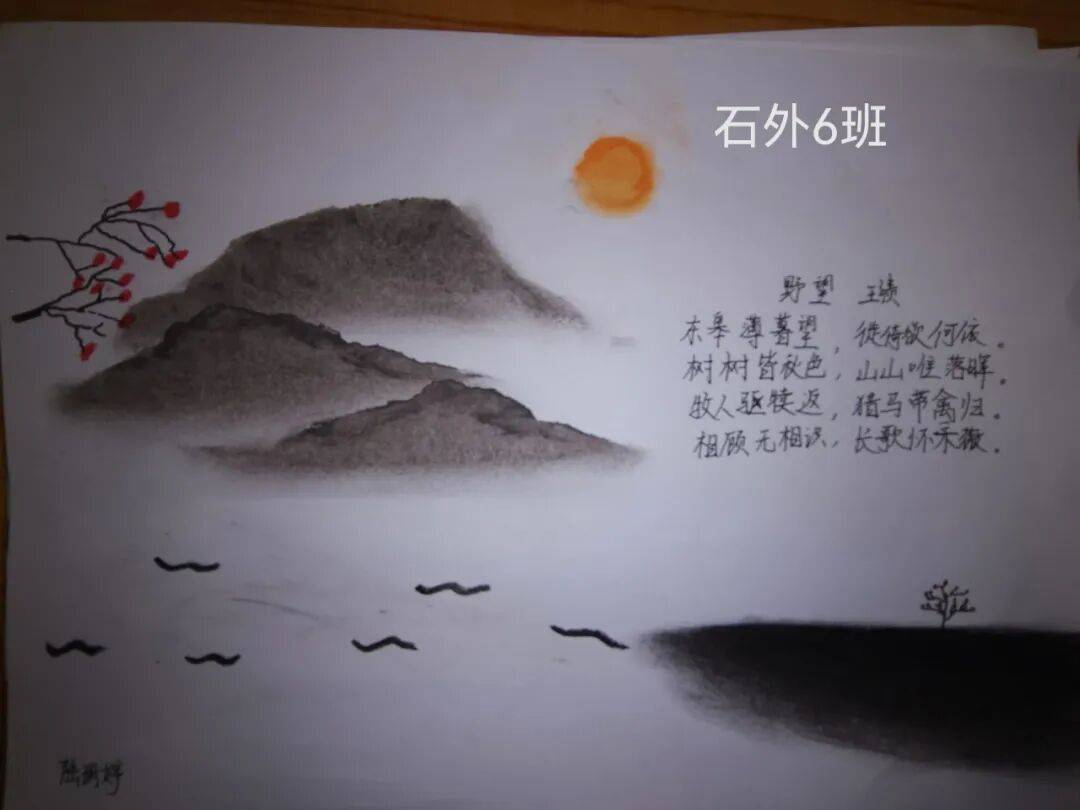 石外6班
野望 王绩
东皋薄暮望，徙倚欲何依。
树树皆秋色，山山唯落晖。
牧人驱犊返，猎马带禽归。
相顾无相识，长歌怀采薇。